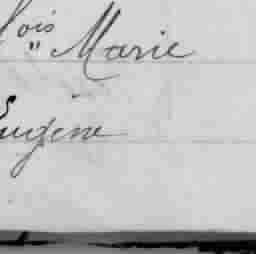 lois
" Marie
Eugène